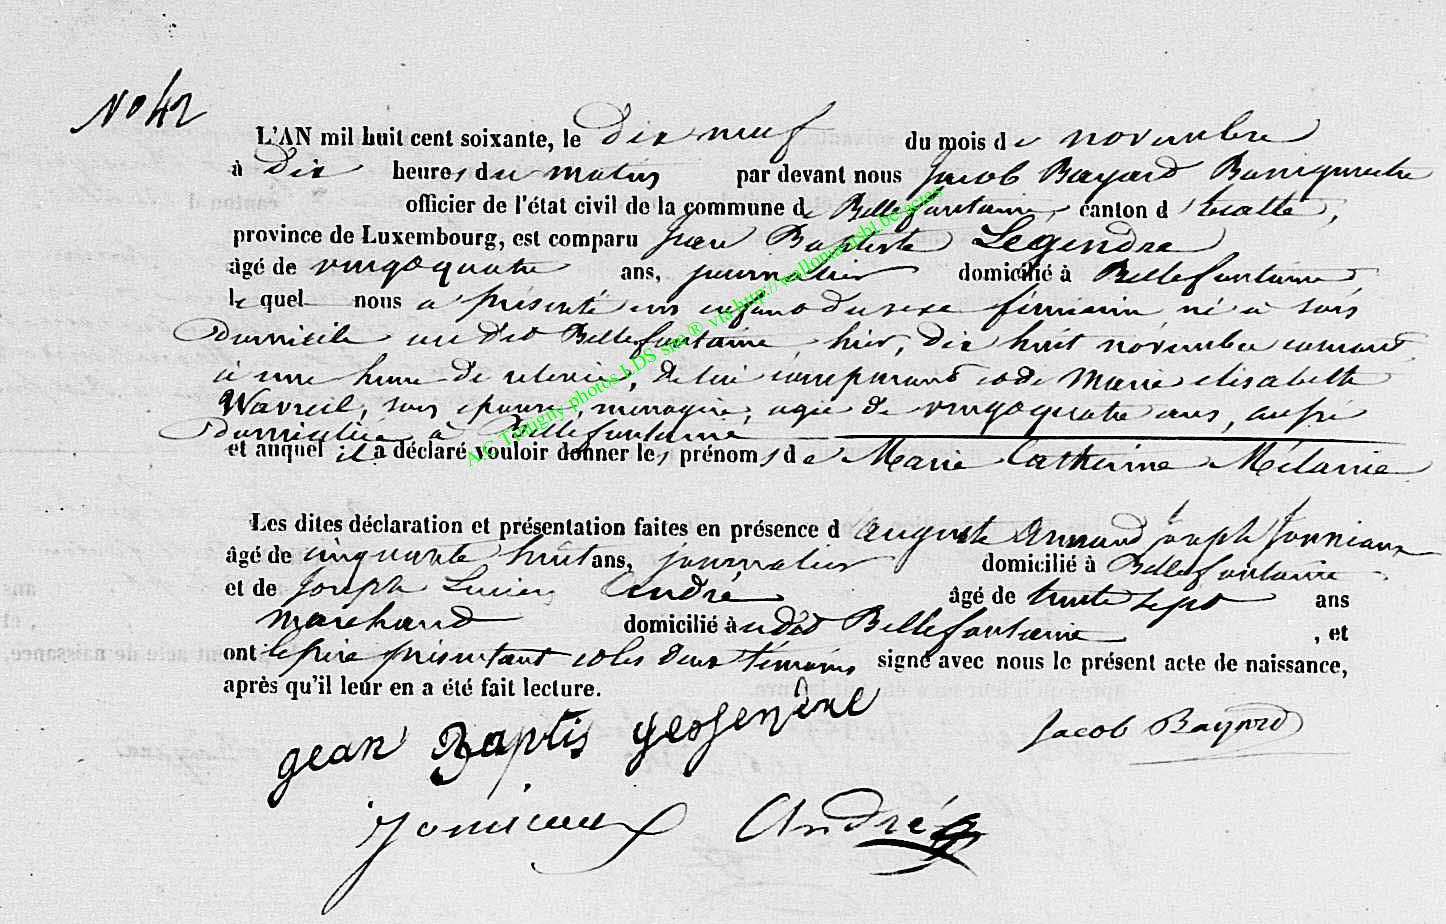 N° 42
L'AN mil huit cent soixante, le dix neuf du mois de novembre
à dix heures du matin par devant nous Jacob Bayard Bourgmestre
officier de l'état civil de la commune de Bellefontaine, canton d'
province de Luxembourg, est comparu Jean Baptiste Legendre
âgé de vingt quatre ans, journalier domicilié à Bellefontaine,
le quel nous a présenté un enfant du sexe féminin, né à son
domicile au dit Bellefontaine, hier, dix huit novembre courant
à une heure de relevée, de lui comparant et de Marie elisabeth
Wavreil, son épouse, ménagère, agée de vingt quatre ans, aussi
domiciliée à Bellefontaine
et auquel il a déclaré vouloir donner les prénoms de Marie Catherine Mélanie
Les dites déclaration et présentation faites en présence d'auguste armand joseph
âgé de cinquante huit ans, journalier domicilié à Bellefontaine
et de Joseph Lucien André âgé de trente sept ans
marchand domicilié au dit Bellefontaine, et
ont le père présentant et les deux témoins signé avec nous le présent acte de naissance,
après qu'il leur en a été fait lecture.
gean Baptis
Jacob Bayard
André
A.G. Tintigny photos LDS site ® via http://wallonia